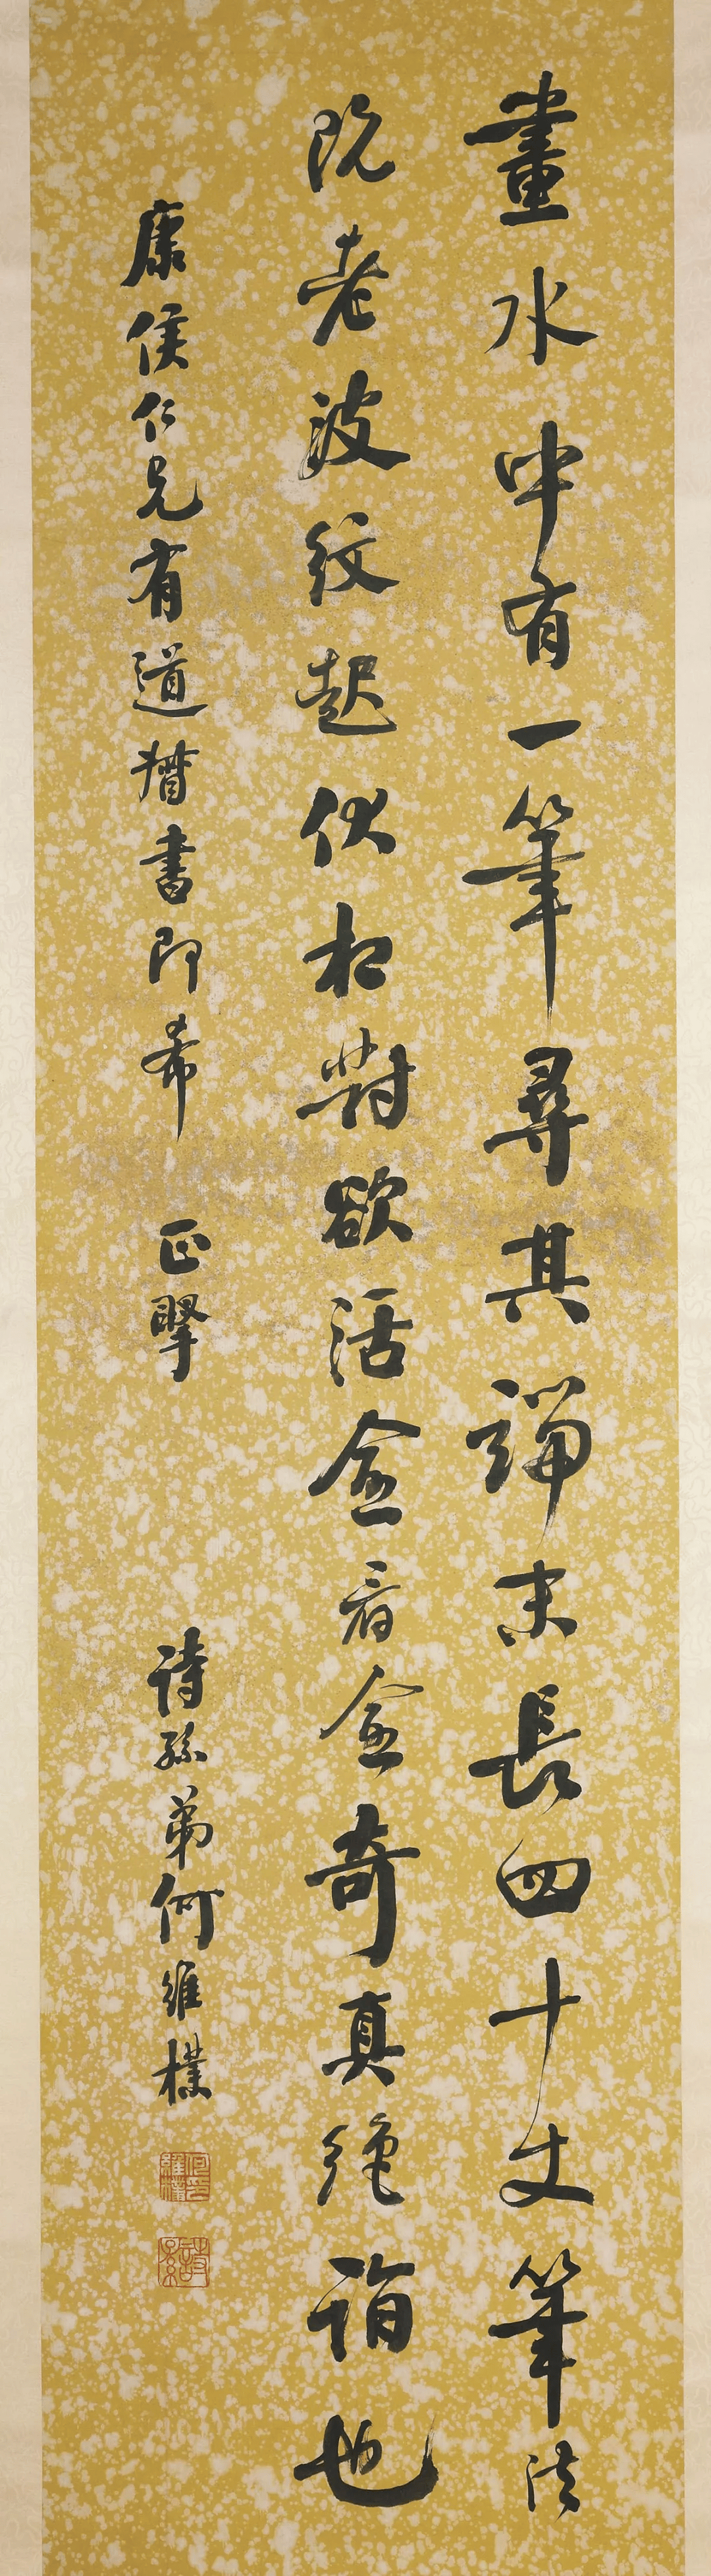 畫水中有一筆尋其端末長四十丈筆法
既老波紋起伏相對欲活僉看僉奇真絕詣也
康侯仁兄有道揩書即希 正擥
詩孫弟何維樸
何維樸印
詩孫